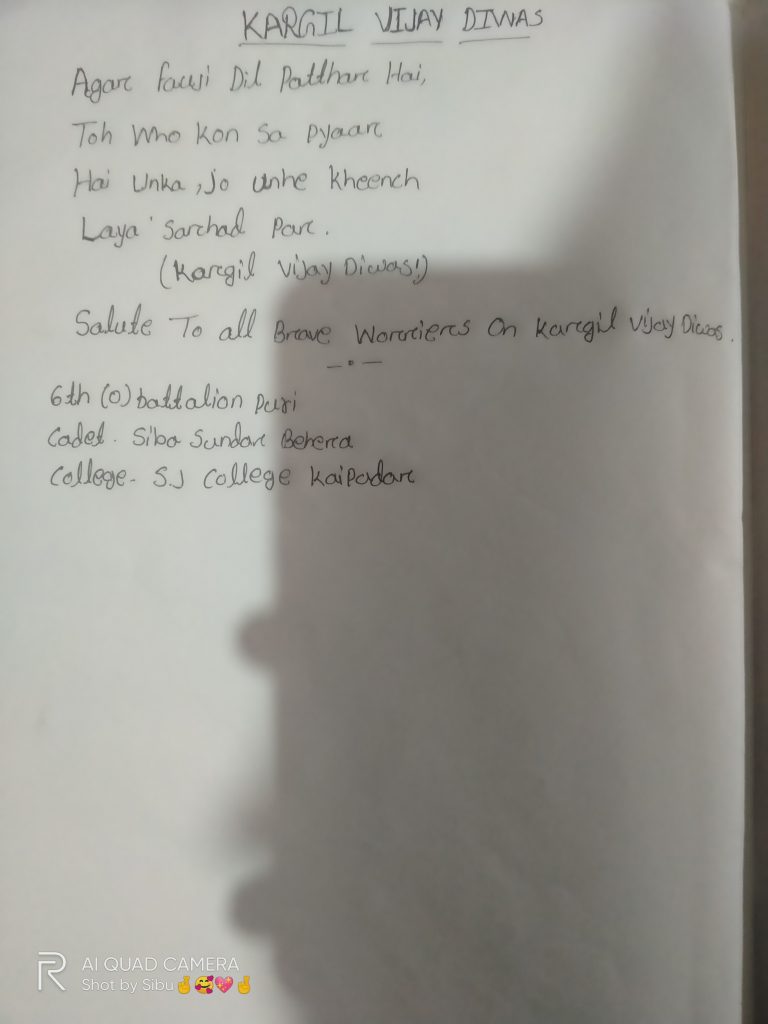 KARGIL VIJAY DIWAS
Agar fauji Dil Patthar Hai,
Toh Who Kon Sa Pyaar
Hai Unka, Jo Unhe Kheench
Laya Sarhad Par.
(Kargil Vijay Diwas!)
Salute To all Brave Worriers On Kargil Vijay Diwas.
6th (O) battalion Puri
Cadet. Siba Sundar Behera
College- S.J College Kaipadar
AI QUAD CAMERA
Shot by Sibu✌️🥰💖✌️